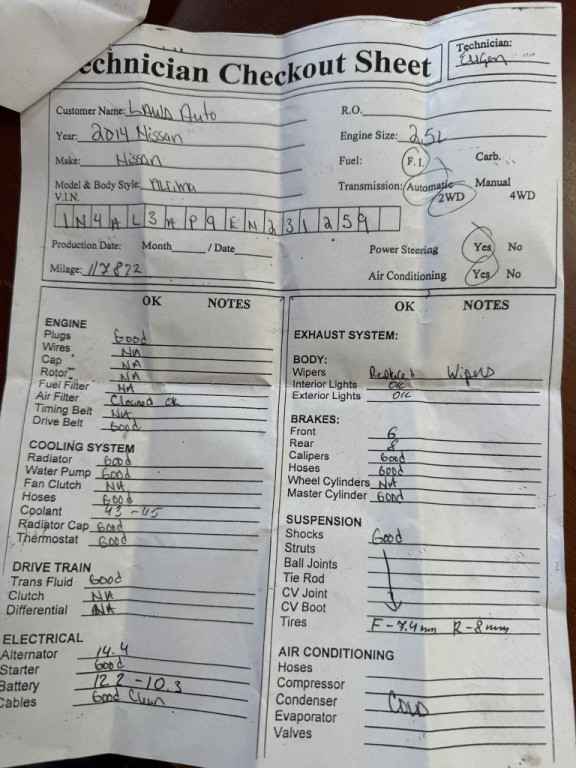 Technician Checkout Sheet
Technician:
Customer Name: Auto
R.O.
Year: 2014 Nissan
Engine Size: 2.5L
Make: Nissan
Fuel: F.I. Carb.
Model & Body Style: Altima
Transmission: Automatic Manual
2WD 4WD
V.I.N.
1N4AL3AP9EN231259
Production Date: Month / Date
Power Steering Yes No
Milage: 117822
Air Conditioning Yes No
OK NOTES
ENGINE
Plugs Good
Wires NA
Cap NA
Rotor NA
Fuel Filter NA
Air Filter Cleaned OK
Timing Belt NA
Drive Belt Good
COOLING SYSTEM
Radiator Good
Water Pump Good
Fan Clutch NA
Hoses Good
Coolant 43 - 45
Radiator Cap Good
Thermostat Good
DRIVE TRAIN
Trans Fluid Good
Clutch NA
Differential NA
ELECTRICAL
Alternator 14.4
Starter Good
Battery 12.2 - 10.3
Cables Good Clean
OK NOTES
EXHAUST SYSTEM:
BODY:
Wipers Replaced Wipers
Interior Lights OK
Exterior Lights OK
BRAKES:
Front 6
Rear 8
Calipers Good
Hoses Good
Wheel Cylinders NA
Master Cylinder Good
SUSPENSION
Shocks Good
Struts
Ball Joints
Tie Rod
CV Joint
CV Boot
Tires F - 7.4mm R - 8mm
AIR CONDITIONING
Hoses
Compressor
Condenser COLD
Evaporator
Valves